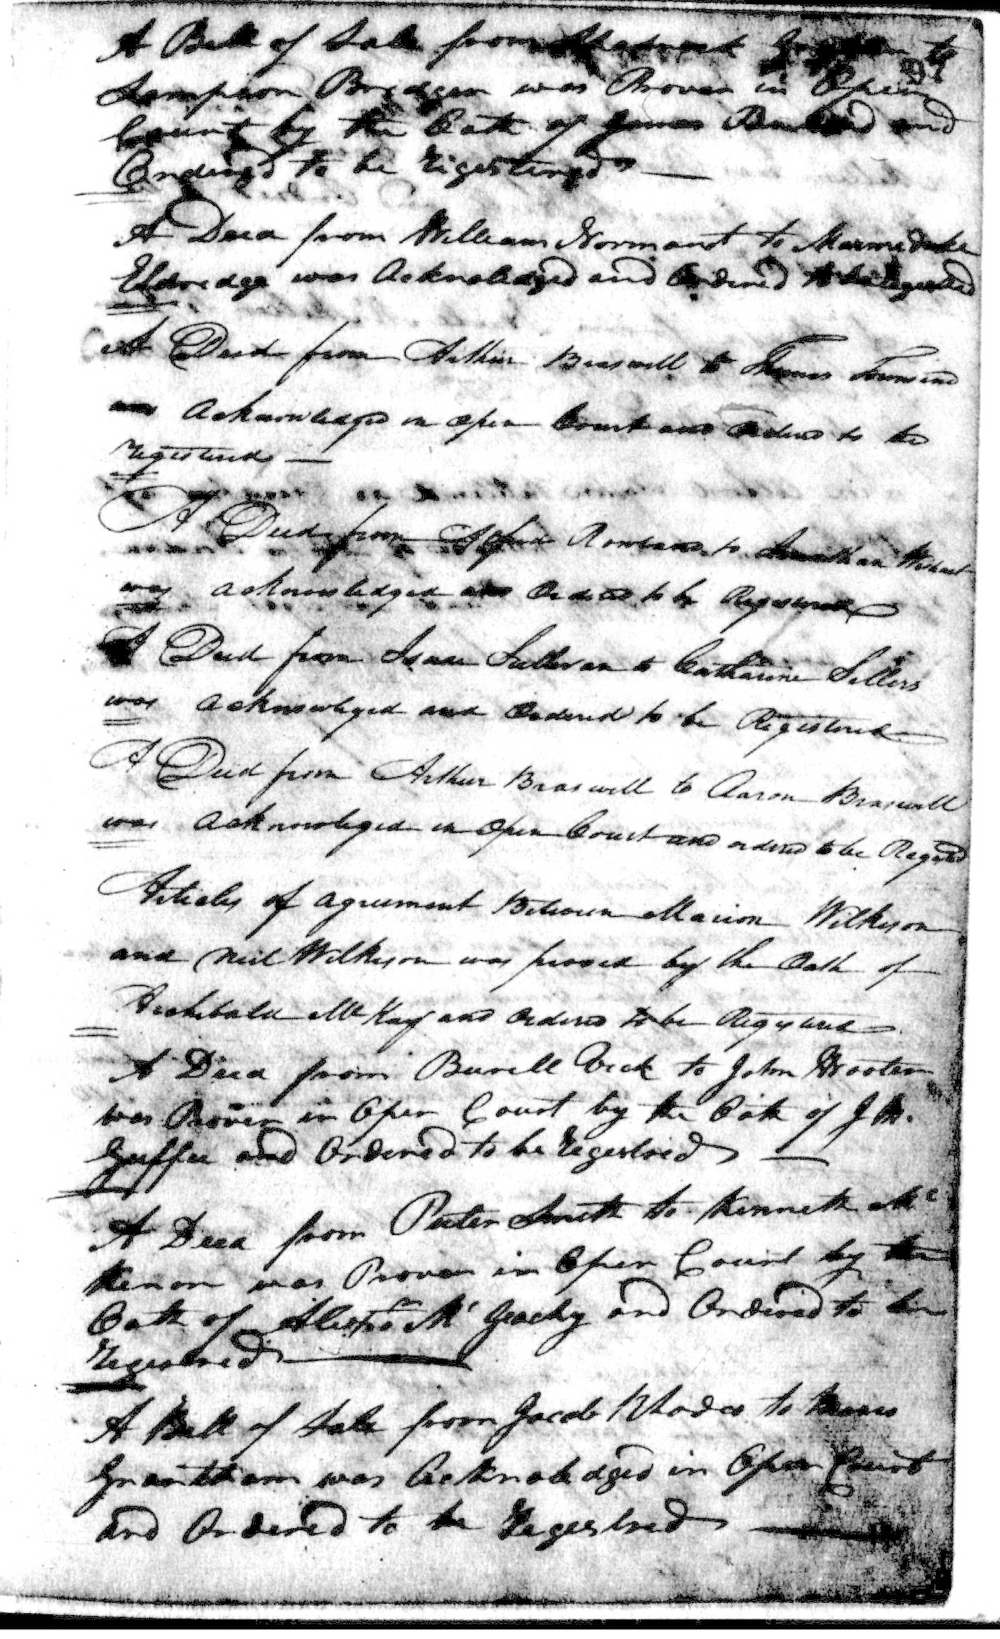 A Bill of Sale from Shadrack to
97
Sampson Bridgen was Proven in Open
Court by the Oath of James and
Ordered to be Rigestered
A Deed from William Normant to Marmeduke
Eldredge was Acknoledged and Ordered to be Regestered
A Deed from Arther Braswell to Thomas Townsend
was Acknowledged in Open Court and Ordered to be
registered
A Deed from Rowland to Jonathan
was acknowledged and Ordered to be Registered
A Deed from Isaac Sullivan to Catharine Sellers
was acknowleged and Ordered to be Registered
A Deed from Arthur Braswell to Aaron Braswell
was acknowleged in Open Court and ordered to be
Articles of agreement Between Marion Wilkeson
and Neil Wilkeson was proved by the Oath of
Archibald McKay and Ordered to be Registered
A Deed from Burell Vick to John Wooten
was Proven in Open Court by the Oath of J M.
Guffee and Ordered to be Regestred
A Deed from Peter Smith to Kenneth Mc
Kenon was Proven in Open Court by the
Oath of Mc Geachy and Ordered to be
Regestred
A Bill of Sale from Jacob Rhodes to
Grantham was Acknoledged in Open Court
and Ordered to be Regestred